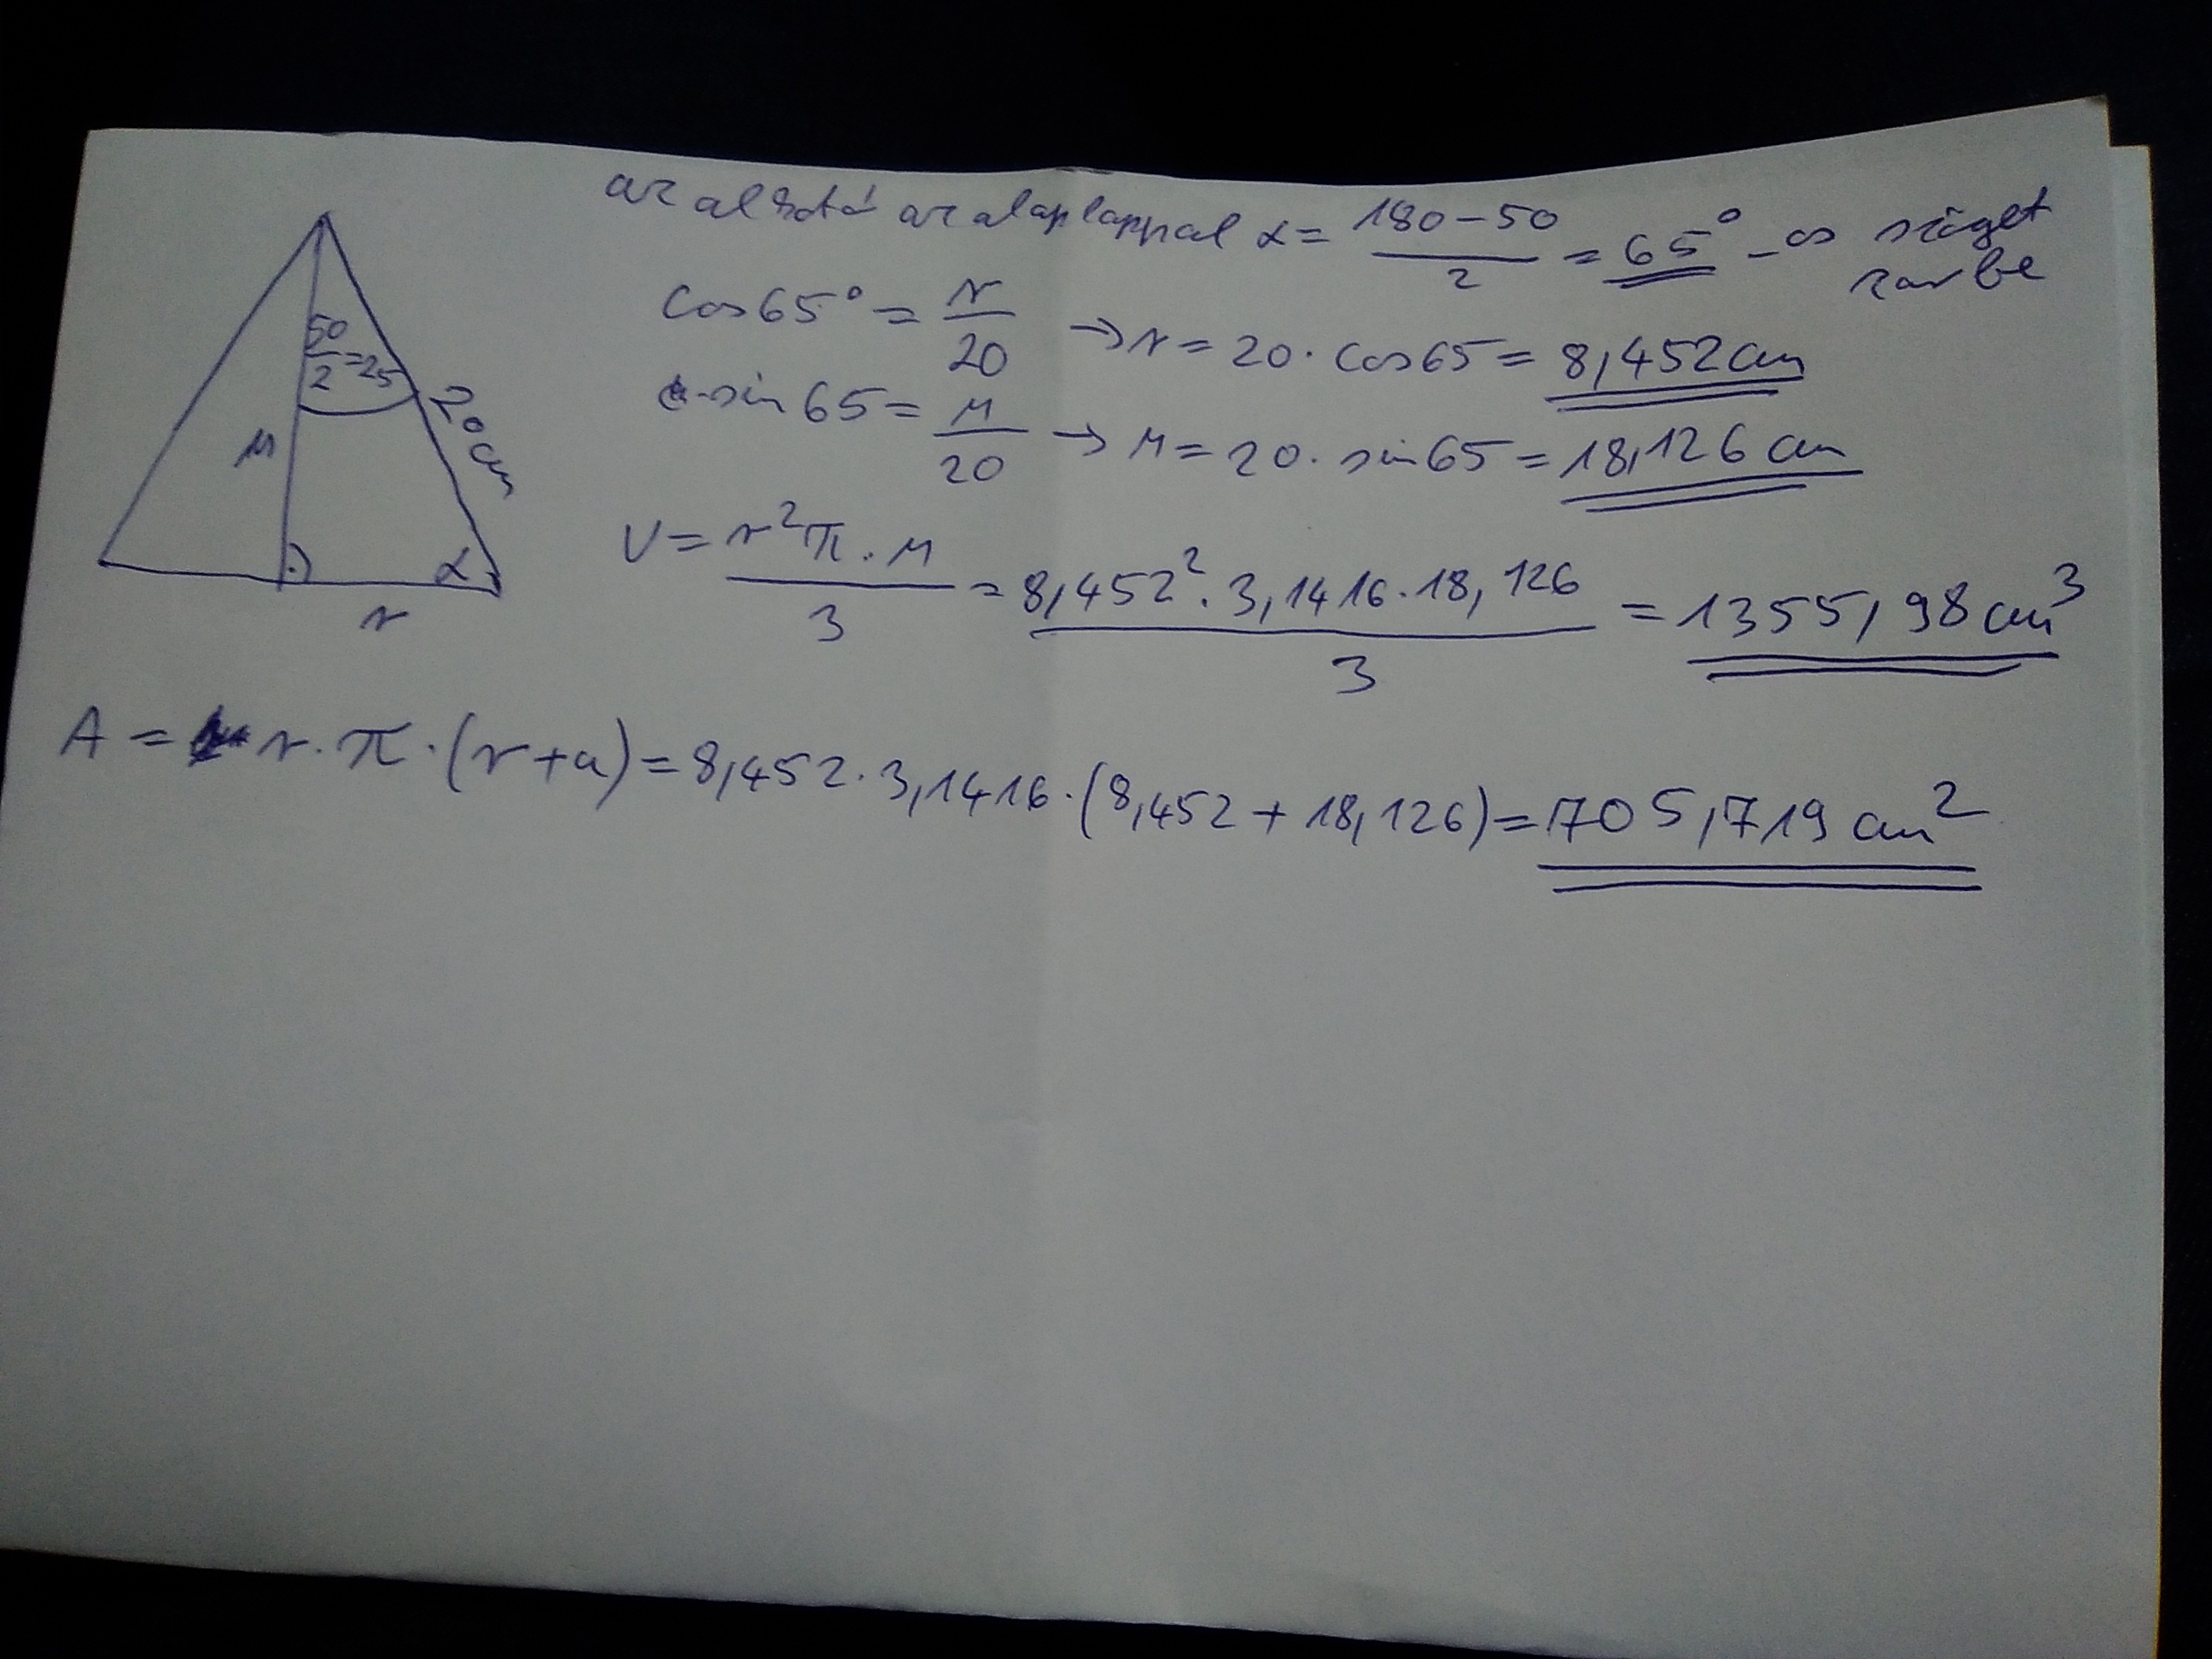 az alkotó az alaplappal α = (180-50)/2 = 65° -os szöget zár be
50/2 = 25
20 cm
M
α
r
cos 65° = r/20 → r = 20 · cos 65 = 8,452 cm
sin 65 = M/20 → M = 20 · sin 65 = 18,126 cm
V = (r²π · M)/3 = (8,452² · 3,1416 · 18,126)/3 = 1355,98 cm³
A = r · π · (r+a) = 8,452 · 3,1416 · (8,452 + 18,126) = 705,719 cm²